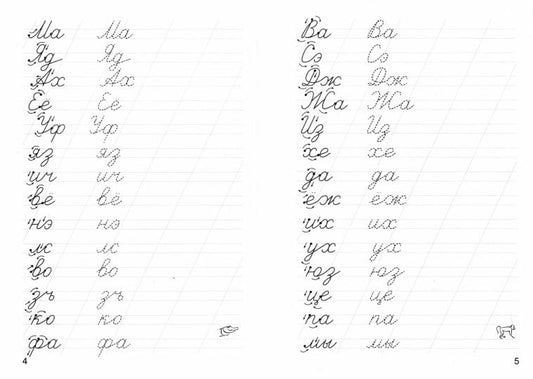 Ма Ма
Яд Яд
Ах Ах
Ее Ее
Уф Уф
яз яз
ич ич
ве ве
нэ нэ
лс лс
во во
зъ зъ
ко ко
фа фа
4
Ва Ва
Сэ Сэ
Дж Дж
Жа Жа
Из Из
хе хе
да да
ёж ёж
их их
ух ух
юз юз
це це
па па
мы мы
5